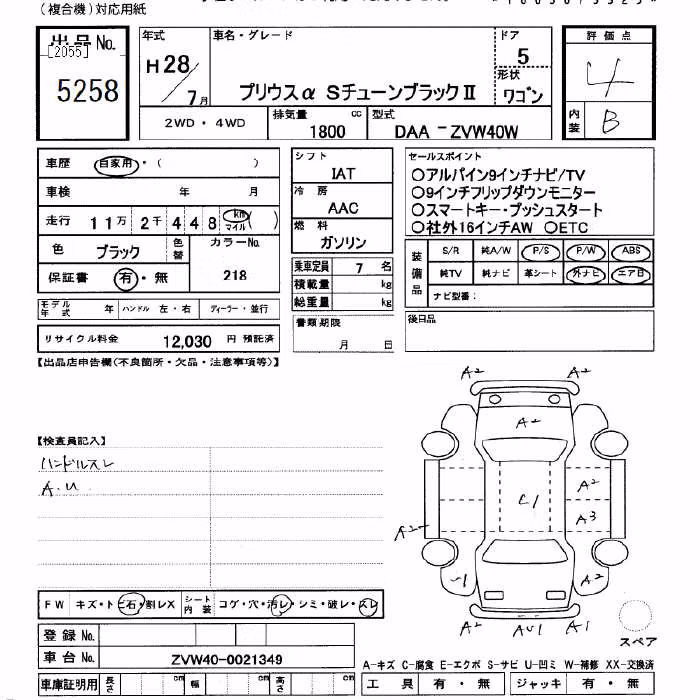 (複合機)対応用紙
出品No.
[2055]
5258
年式
H28/7月
車名・グレード
プリウスα SチューンブラックⅡ
ドア
5
形状
ワゴン
評価点
4
内装
B
2WD・4WD
排気量
1800
cc
型式
DAA－ZVW40W
車歴 自家用・( )
車検 年 月
走行 11万2千448 km マイル ( )
色 ブラック 色替
カラーNo.
218
保証書 有・無
モデル年式 年 ハンドル 左・右 ディーラー・並行
リサイクル料金 12,030 円 預託済
シフト
IAT
冷房
AAC
燃料
ガソリン
乗車定員 7 名
積載量 kg
総重量 kg
書類期限
月 日
セールスポイント
○アルパイン9インチナビ/TV
○9インチフリップダウンモニター
○スマートキー・プッシュスタート
○社外16インチAW ○ETC
装備品
S/R 純A/W P/S P/W ABS
純TV 純ナビ 革シート 外ナビ エアB
ナビ型番:
後日品
【出品店申告欄(不良箇所・欠品・注意事項等)】
【検査員記入】
ハンドルスレ
A.U
A2 A2
A2
C1
A2
A3
A2
A2
A2 AU1 A1
スペア
FW キズ・トビ石・割レX シート内装 コゲ・穴・汚レ・シミ・破レ・スレ
登録No.
車台No. ZVW40-0021349
車庫証明用 長さ cm 幅 cm 高さ cm
A-キズ C-腐食 E-エクボ S-サビ U-凹ミ W-補修 XX-交換済
工具 有・無 ジャッキ 有・無